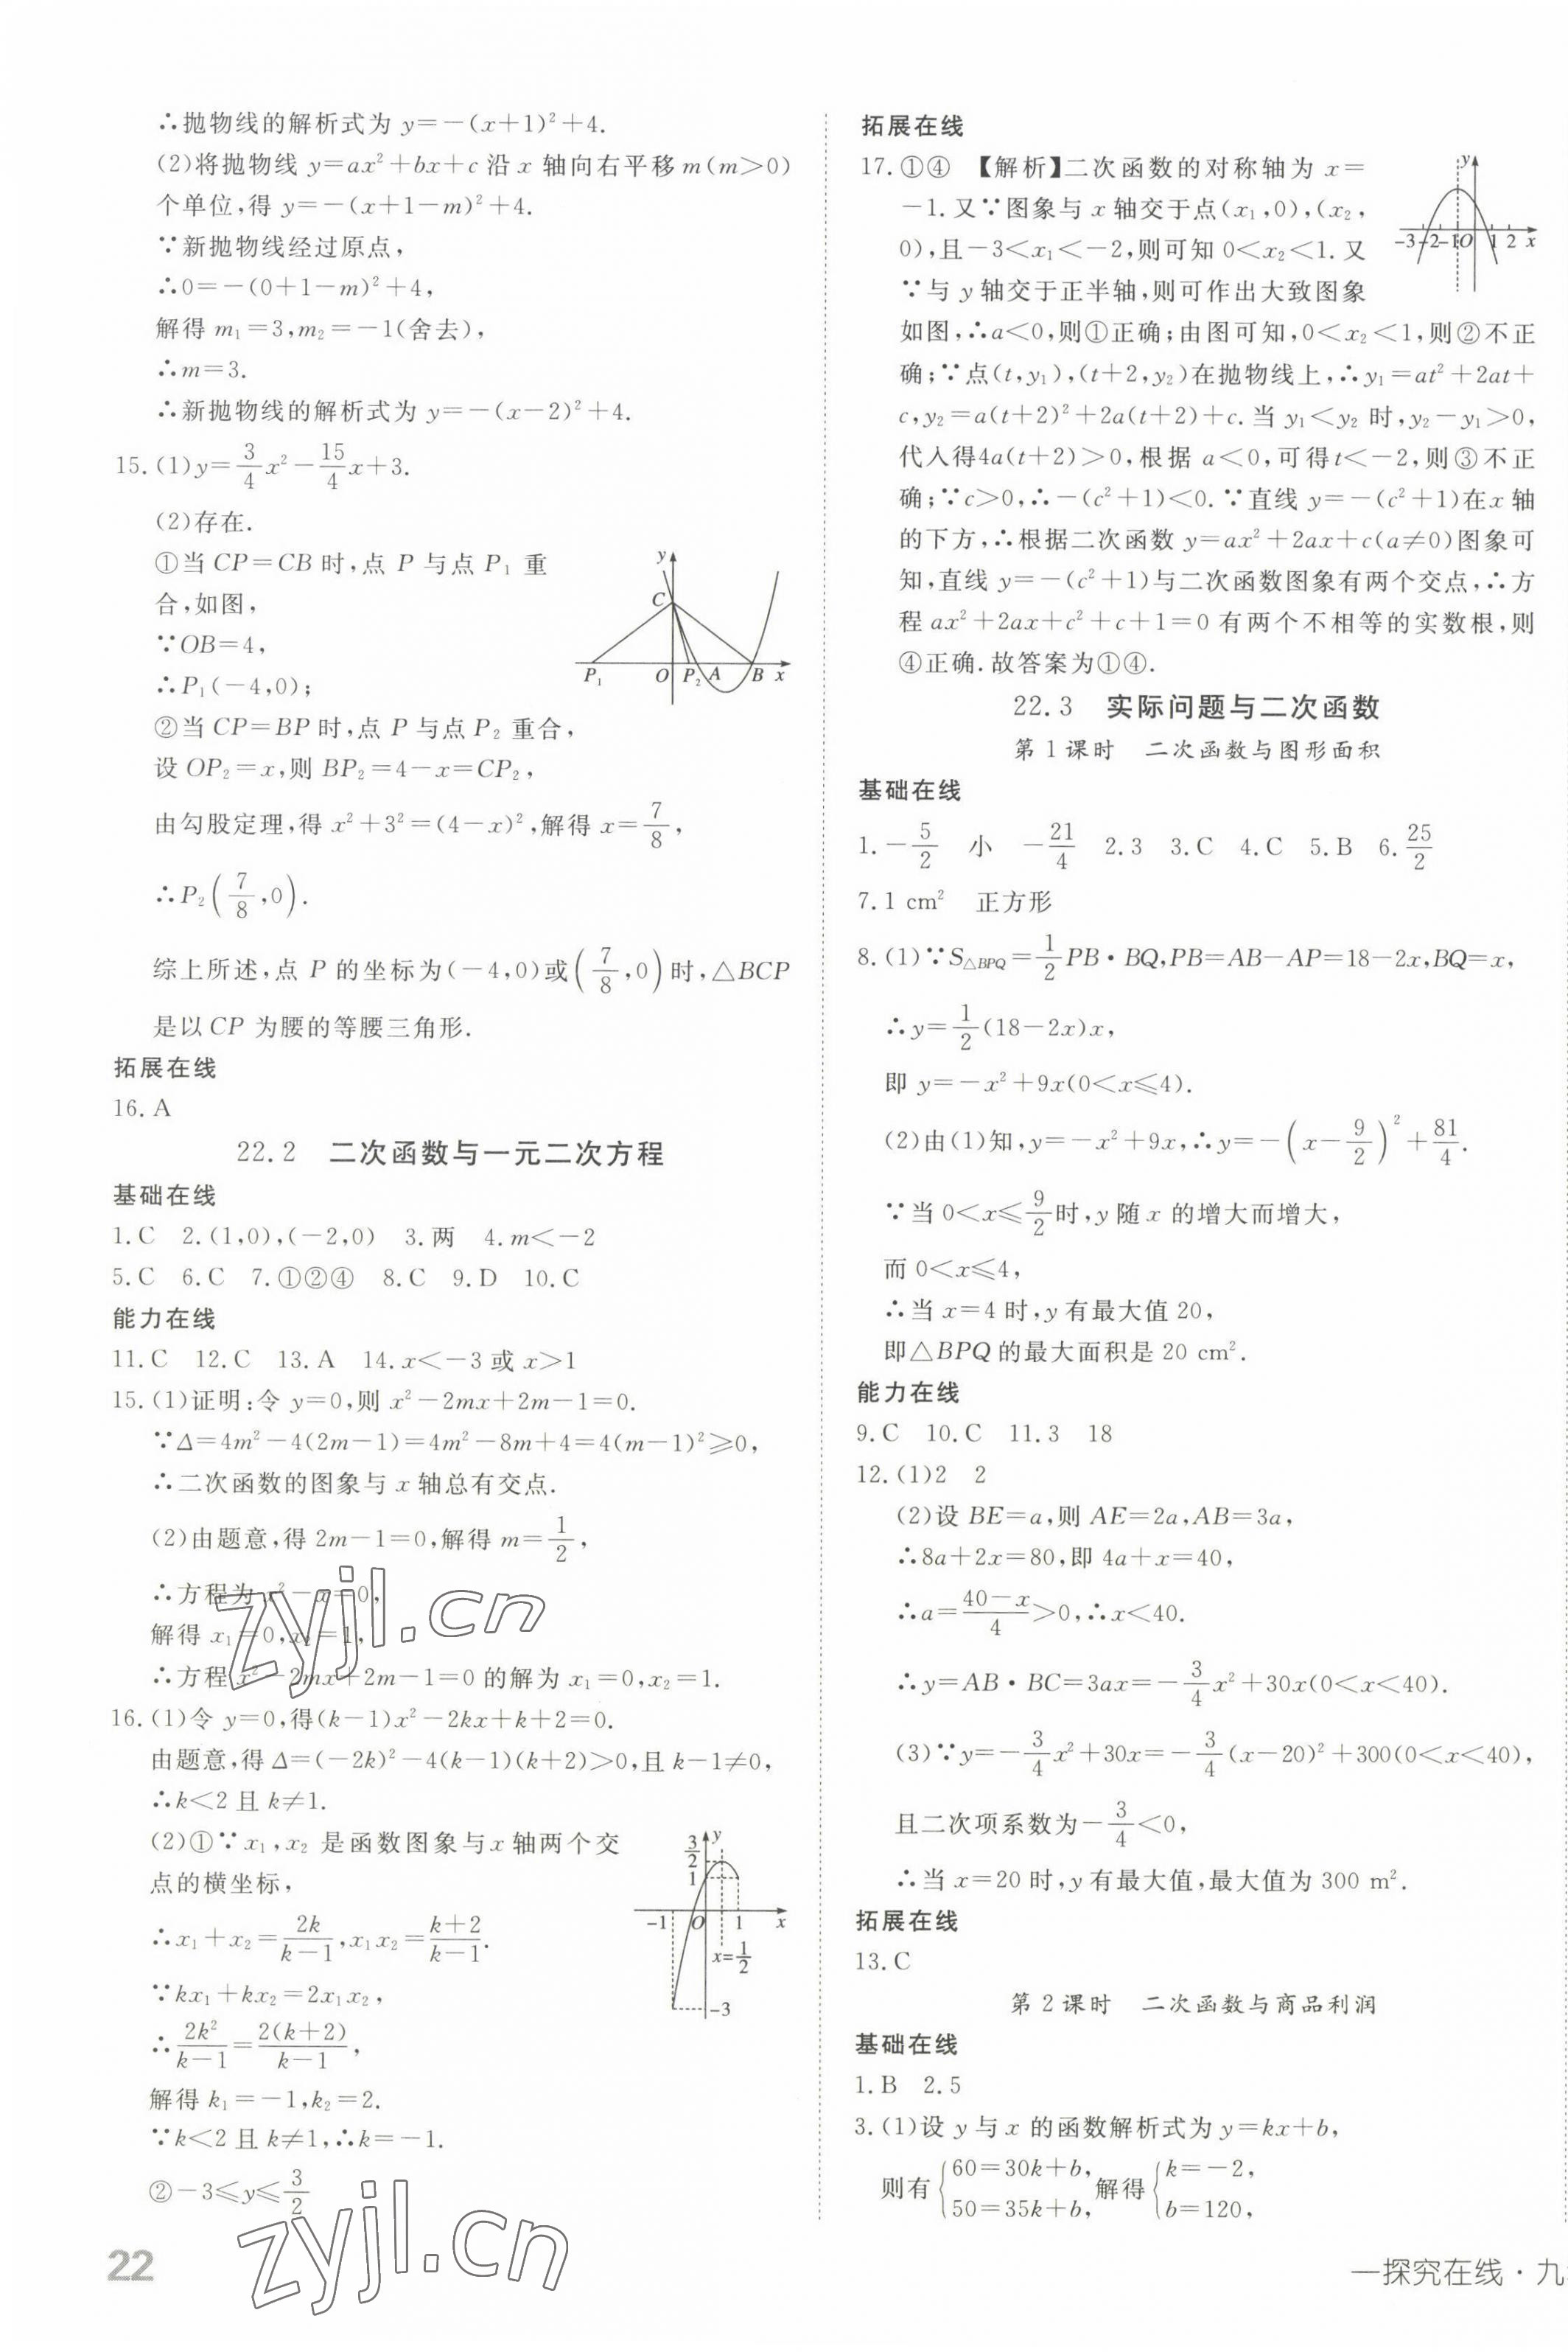 ∴抛物线的解析式为 y=-(x+1)²+4.
(2)将抛物线 y=ax²+bx+c 沿 x 轴向右平移 m(m>0)
个单位,得 y=-(x+1-m)²+4.
∵新抛物线经过原点,
∴0=-(0+1-m)²+4,
解得 m₁=3,m₂=-1(舍去),
∴m=3.
∴新抛物线的解析式为 y=-(x-2)²+4.
15.(1)y=3/4x²-15/4x+3.
(2)存在.
①当 CP=CB 时,点 P 与点 P₁ 重
合,如图,
∵OB=4,
∴P₁(-4,0);
②当 CP=BP 时,点 P 与点 P₂ 重合,
设 OP₂=x,则 BP₂=4-x=CP₂,
由勾股定理,得 x²+3²=(4-x)²,解得 x=7/8,
∴P₂(7/8,0).
综上所述,点 P 的坐标为(-4,0)或(7/8,0)时,△BCP
是以 CP 为腰的等腰三角形.
y
C
P₁ O P₂ A B x
拓展在线
16.A
22.2 二次函数与一元二次方程
基础在线
1.C 2.(1,0),(-2,0) 3.两 4.m<-2
5.C 6.C 7.①②④ 8.C 9.D 10.C
能力在线
11.C 12.C 13.A 14.x<-3 或 x>1
15.(1)证明:令 y=0,则 x²-2mx+2m-1=0.
∵Δ=4m²-4(2m-1)=4m²-8m+4=4(m-1)²≥0,
∴二次函数的图象与 x 轴总有交点.
(2)由题意,得 2m-1=0,解得 m=1/2,
∴方程为 x²-x=0,
解得 x₁=0,x₂=1,
∴方程 x²-2mx+2m-1=0 的解为 x₁=0,x₂=1.
16.(1)令 y=0,得(k-1)x²-2kx+k+2=0.
由题意,得 Δ=(-2k)²-4(k-1)(k+2)>0,且 k-1≠0,
∴k<2 且 k≠1.
(2)①∵x₁,x₂ 是函数图象与 x 轴两个交
点的横坐标,
∴x₁+x₂=2k/(k-1),x₁x₂=(k+2)/(k-1).
∵kx₁+kx₂=2x₁x₂,
∴2k²/(k-1)=2(k+2)/(k-1),
解得 k₁=-1,k₂=2.
∵k<2 且 k≠1,∴k=-1.
②-3≤y≤3/2
3/2 y
1
-1 O 1 x
x=1/2
-3
zyjl.cn
zyjl.cn
22
拓展在线
17.①④ 【解析】二次函数的对称轴为 x=
-1.又∵图象与 x 轴交于点(x₁,0),(x₂,
0),且-3<x₁<-2,则可知 0<x₂<1.又
∵与 y 轴交于正半轴,则可作出大致图象
如图,∴a<0,则①正确;由图可知,0<x₂<1,则②不正
确;∵点(t,y₁),(t+2,y₂)在抛物线上,∴y₁=at²+2at+
c,y₂=a(t+2)²+2a(t+2)+c.当 y₁<y₂ 时,y₂-y₁>0,
代入得4a(t+2)>0,根据 a<0,可得t<-2,则③不正
确;∵c>0,∴-(c²+1)<0.∵直线 y=-(c²+1)在 x 轴
的下方,∴根据二次函数 y=ax²+2ax+c(a≠0)图象可
知,直线 y=-(c²+1)与二次函数图象有两个交点,∴方
程 ax²+2ax+c²+c+1=0 有两个不相等的实数根,则
④正确.故答案为①④.
y
-3-2-1O 1 2 x
22.3 实际问题与二次函数
第 1 课时 二次函数与图形面积
基础在线
1.-5/2 小 -21/4 2.3 3.C 4.C 5.B 6.25/2
7.1 cm² 正方形
8.(1)∵S△BPQ=1/2PB·BQ,PB=AB-AP=18-2x,BQ=x,
∴y=1/2(18-2x)x,
即 y=-x²+9x(0<x≤4).
(2)由(1)知,y=-x²+9x,∴y=-(x-9/2)²+81/4.
∵当 0<x≤9/2时,y 随 x 的增大而增大,
而 0<x≤4,
∴当 x=4 时,y 有最大值 20,
即△BPQ 的最大面积是 20 cm².
能力在线
9.C 10.C 11.3 18
12.(1)2 2
(2)设 BE=a,则 AE=2a,AB=3a,
∴8a+2x=80,即 4a+x=40,
∴a=(40-x)/4>0,∴x<40.
∴y=AB·BC=3ax=-3/4x²+30x(0<x<40).
(3)∵y=-3/4x²+30x=-3/4(x-20)²+300(0<x<40),
且二次项系数为-3/4<0,
∴当 x=20 时,y 有最大值,最大值为 300 m².
拓展在线
13.C
第 2 课时 二次函数与商品利润
基础在线
1.B 2.5
3.(1)设 y 与 x 的函数解析式为 y=kx+b,
则有{60=30k+b, 50=35k+b,解得{k=-2, b=120,
一探究在线·九